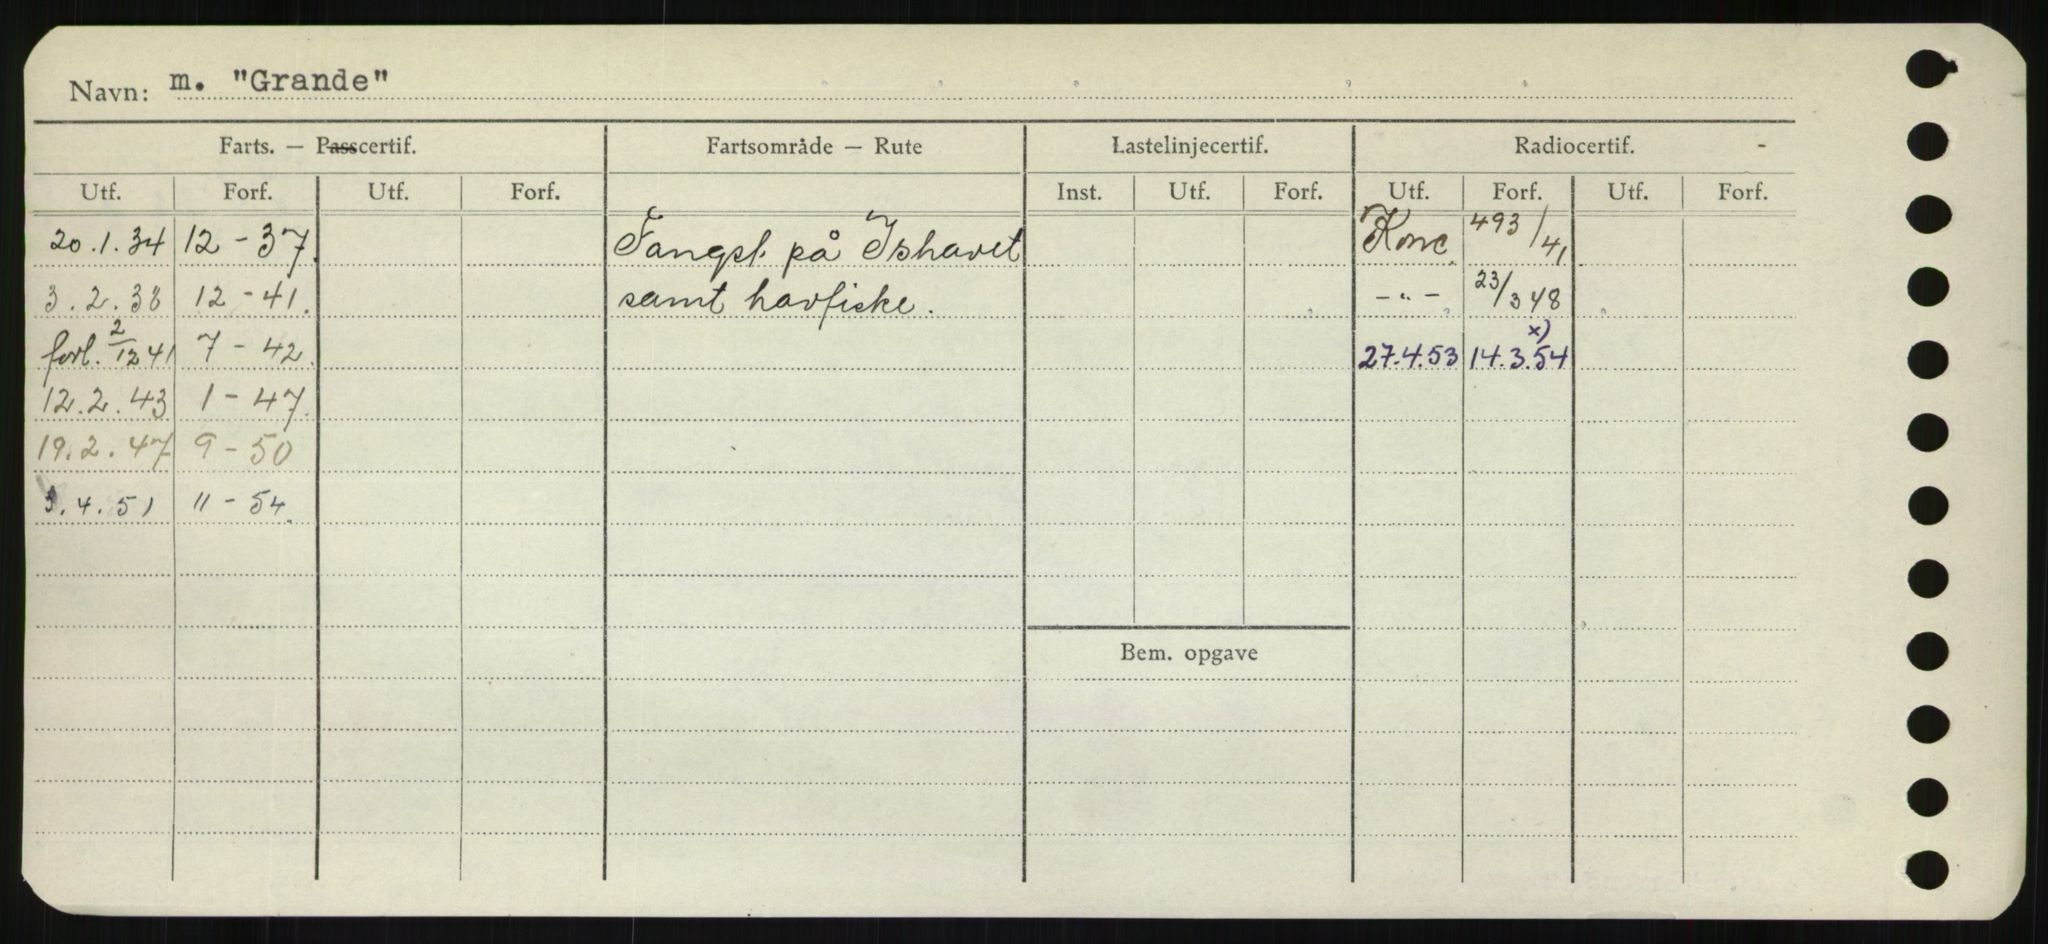 Navn: m. "Grande"
Farts. — Passcertif. Fartsområde — Rute Lastelinjecertif. Radiocertif. -
Utf. Forf. Utf. Forf. Inst. Utf. Forf. Utf. Forf. Utf. Forf.
20.1.34 12-37. Fangst på Ishavet Konc. 493/41
3.2.38 12-41. samt havfiske. -"- 23/3 48
forl. 2/12 41 7-42. 27.4.53 14.3.54 x)
12.2.43 1-47.
19.2.47 9-50
3.4.51 11-54.
Bem. opgave